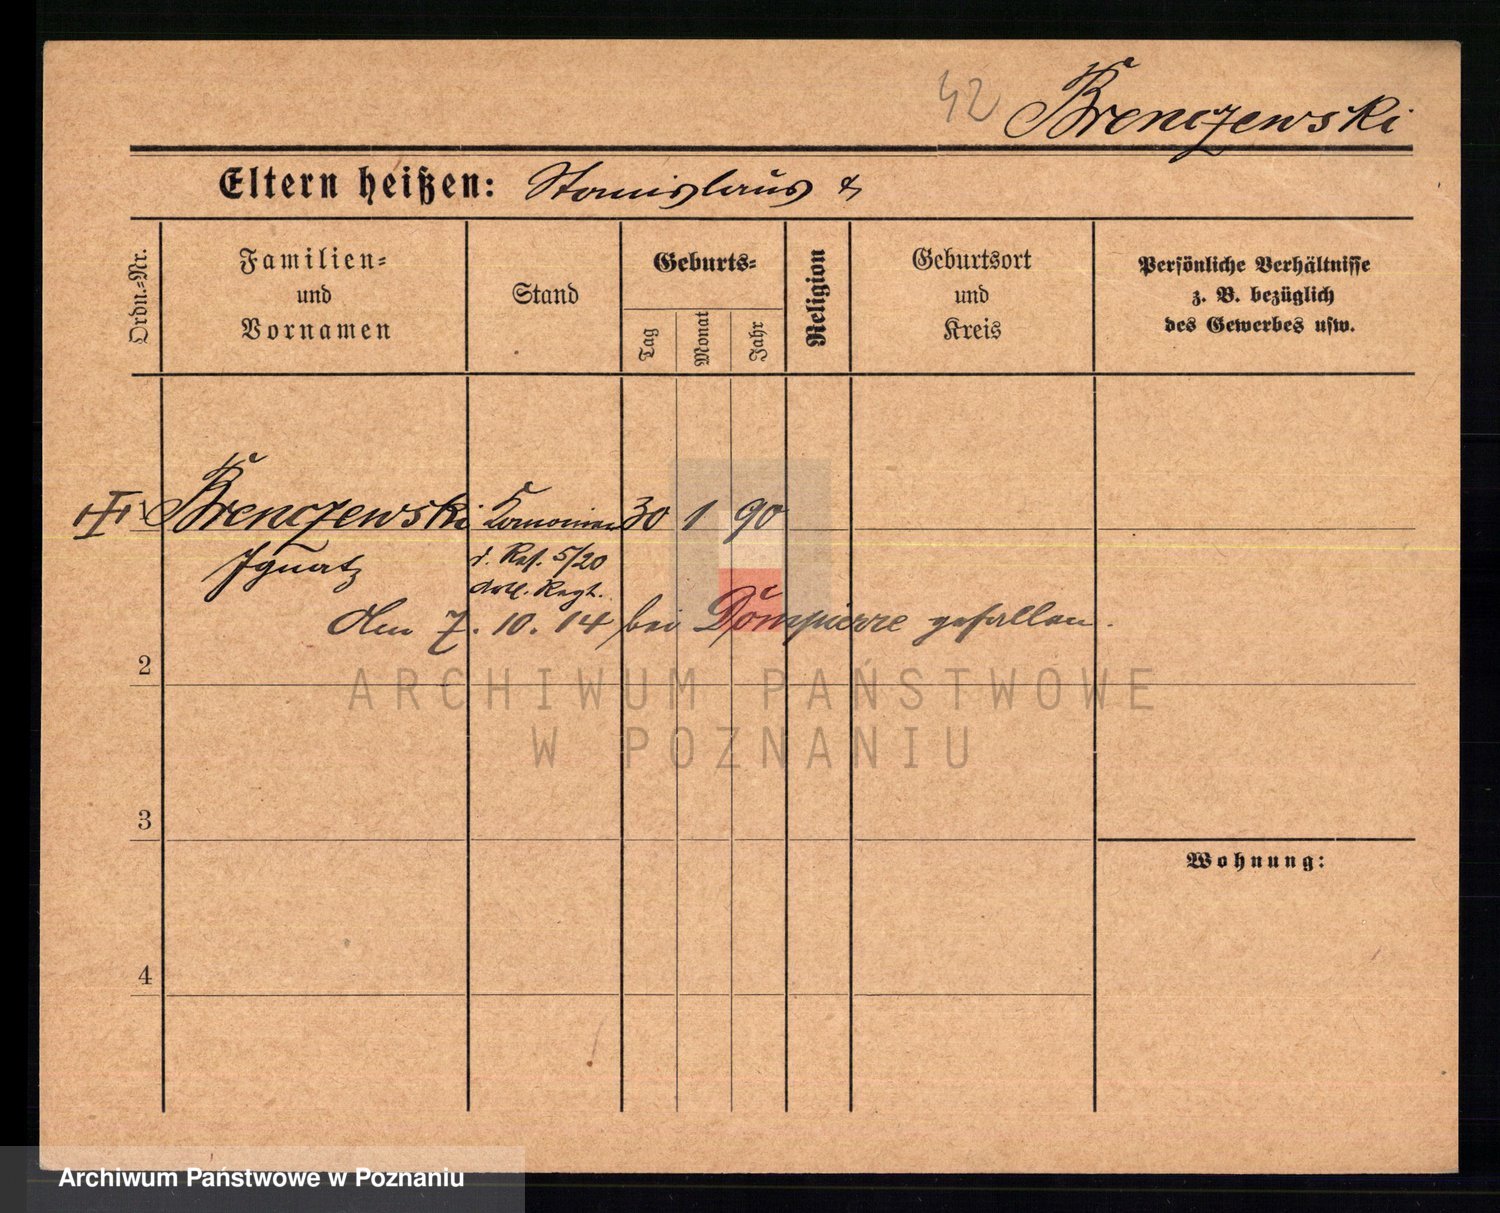 42 Brenczewski
Eltern heißen: Stanislaus &
Ordn.-Nr.
Familien-
und
Vornamen
Stand
Geburts-
Tag
Monat
Jahr
Religion
Geburtsort
und
Kreis
Persönliche Verhältnisse
z. B. bezüglich
des Gewerbes usw.
1 Brenczewski Kanonier 30 1 90
Ignatz d. Res. 5/20
Artl. Regt.
den 7. 10. 14 bei Dompierre gefallen.
2
ARCHIWUM PAŃSTWOWE
W POZNANIU
3
Wohnung:
4
Archiwum Państwowe w Poznaniu